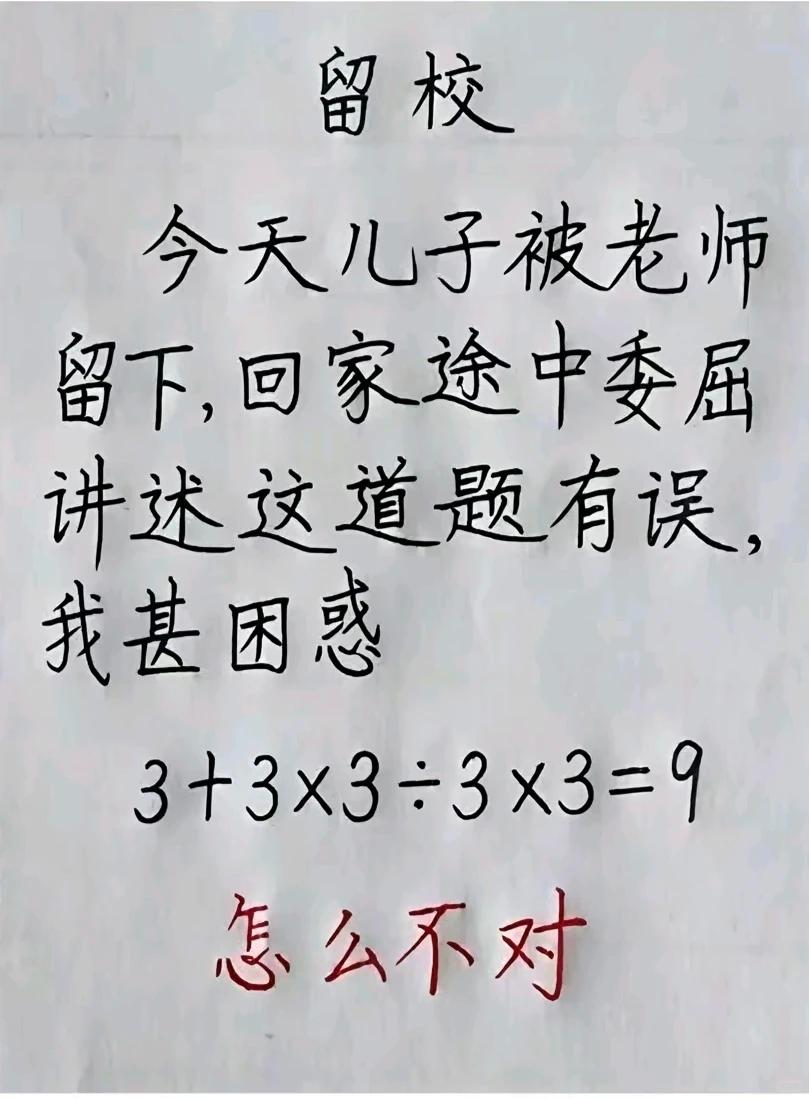 留校
今天儿子被老师
留下,回家途中委屈
讲述这道题有误,
我甚困惑
3+3×3÷3×3=9
怎么不对